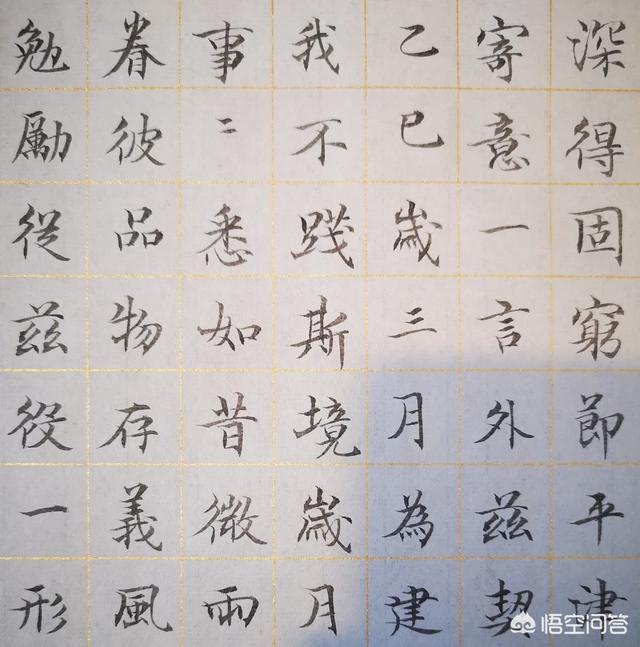 深得固窮節平津
寄意一言外茲契
乙巳歲三月為建
我不踐斯境歲月
事〻悉如昔微雨
眷彼品物存義風
勉勵從茲役一形
悟空问答